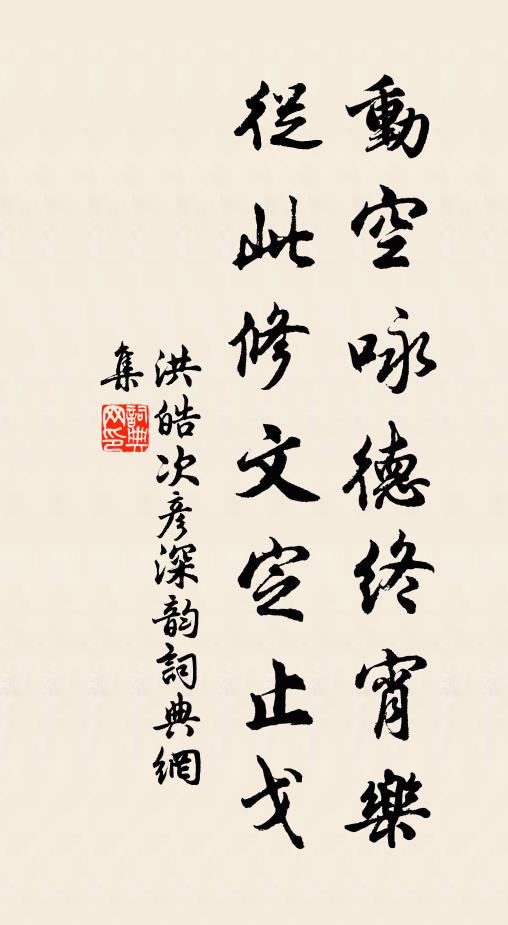 動空咏德終宵樂
從此修文定止戈
洪皓次彦深韵詞典網
集
詞典
网印